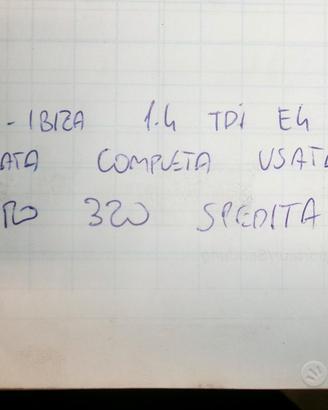 - IBIZA 1.4 TDI E4
ATA COMPLETA USATA
RO 320 SPEDITA